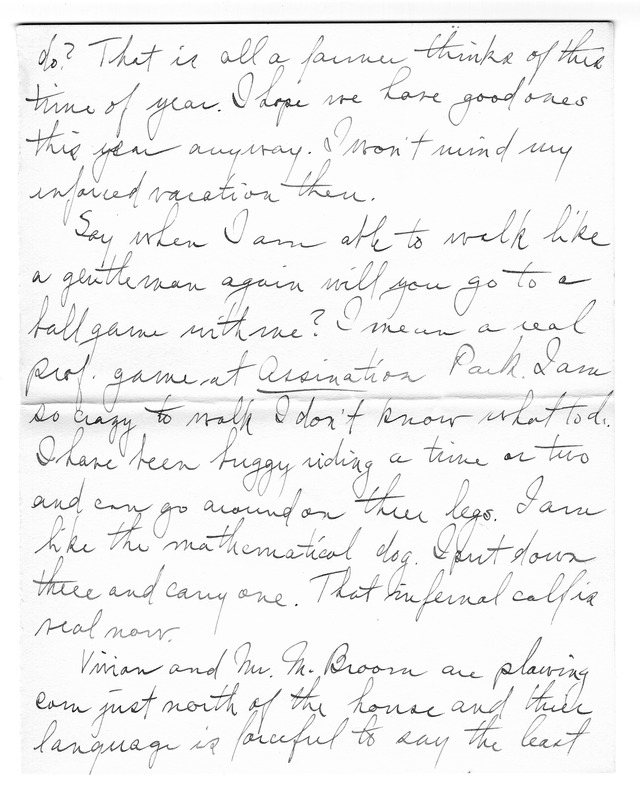 do? That is all a farmer thinks of this
time of year. I hope we have good ones
this year anyway. I won't mind my
inforced vacation then.
Say when I am able to walk like
a gentleman again will you go to a
ball game with me? I mean a real
prof. game at Assination Park. I am
so crazy to walk I don't know what to do.
I have been buggy riding a time or two
and can go around on three legs. I am
like the mathematical dog. I put down
three and carry one. That infernal calf is
veal now.
Vivian and Mr. M. Broom are plowing
corn just north of the house and their
language is forceful to say the least